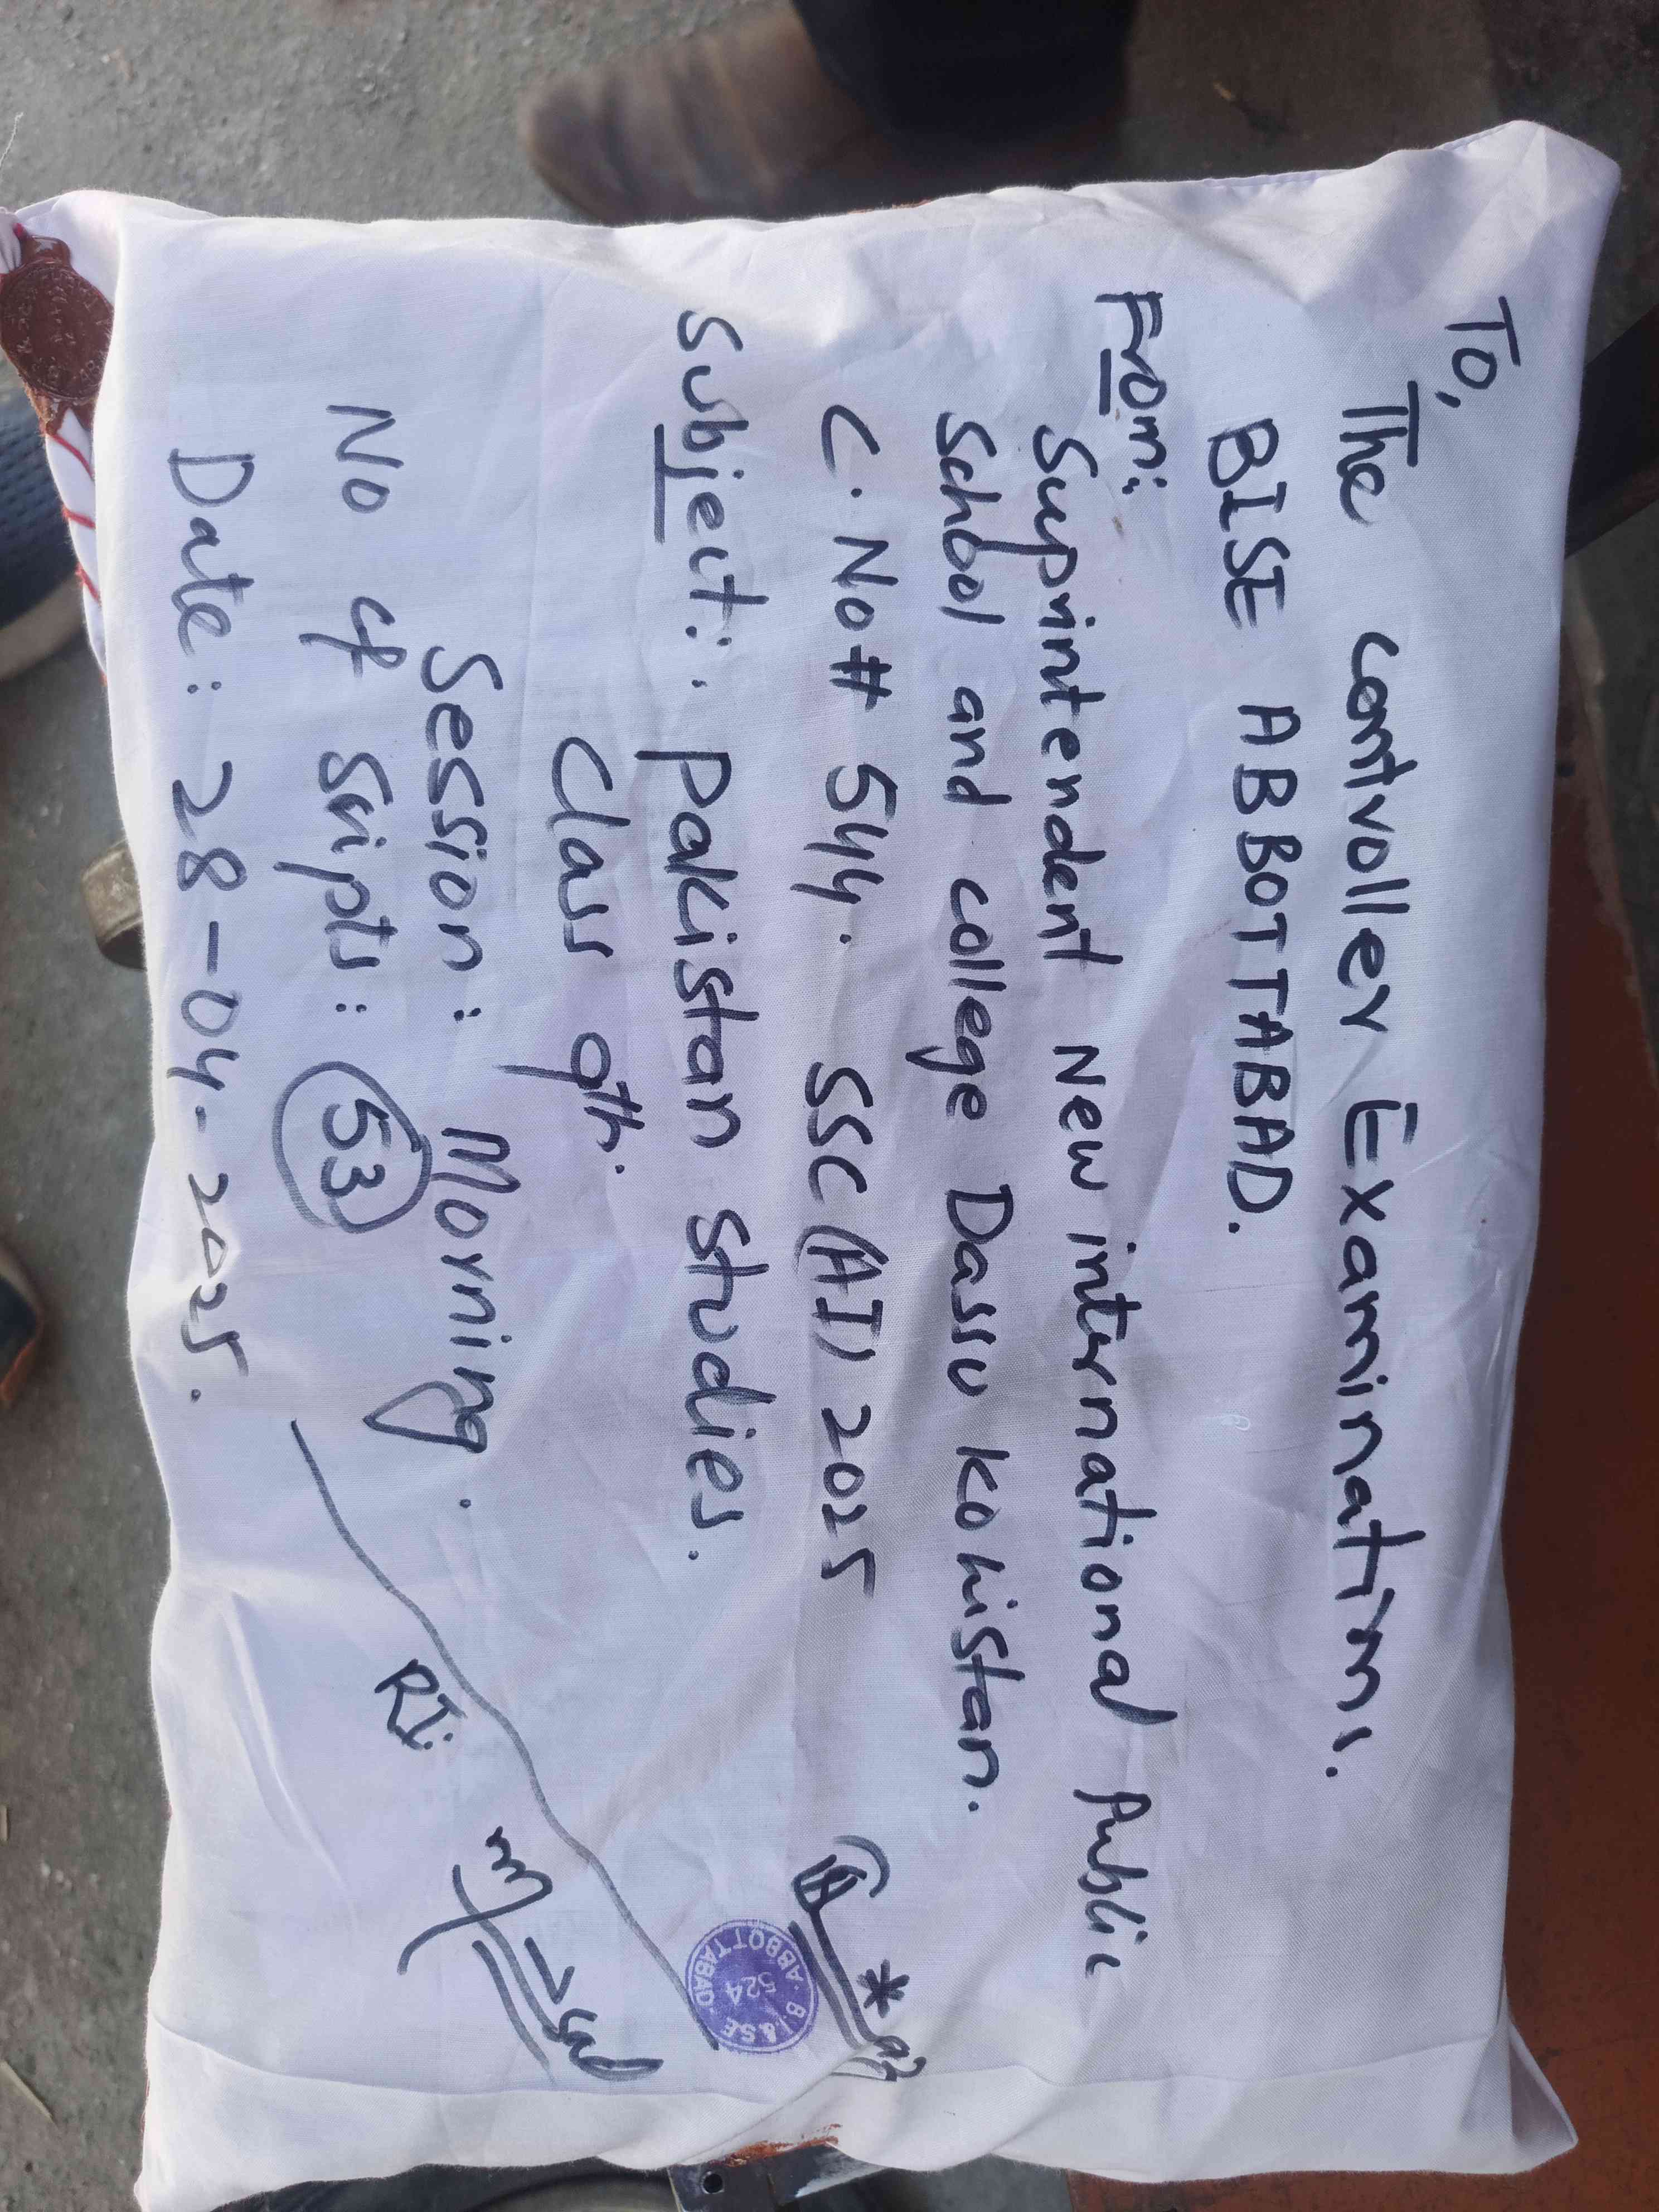 To,
The controller Examination.
BISE ABBOTTABAD.
From:
Suprintendent New international Public
School and college Dassu Kohistan.
C.No# 544. SSC (AI) 2025
Subject: Pakistan Studies.
Class 9th.
Session: Morning.
No of Scripts: 53
Date: 28-04-2025.
RI:
B.I.&S.E
524
ABBOTTABAD